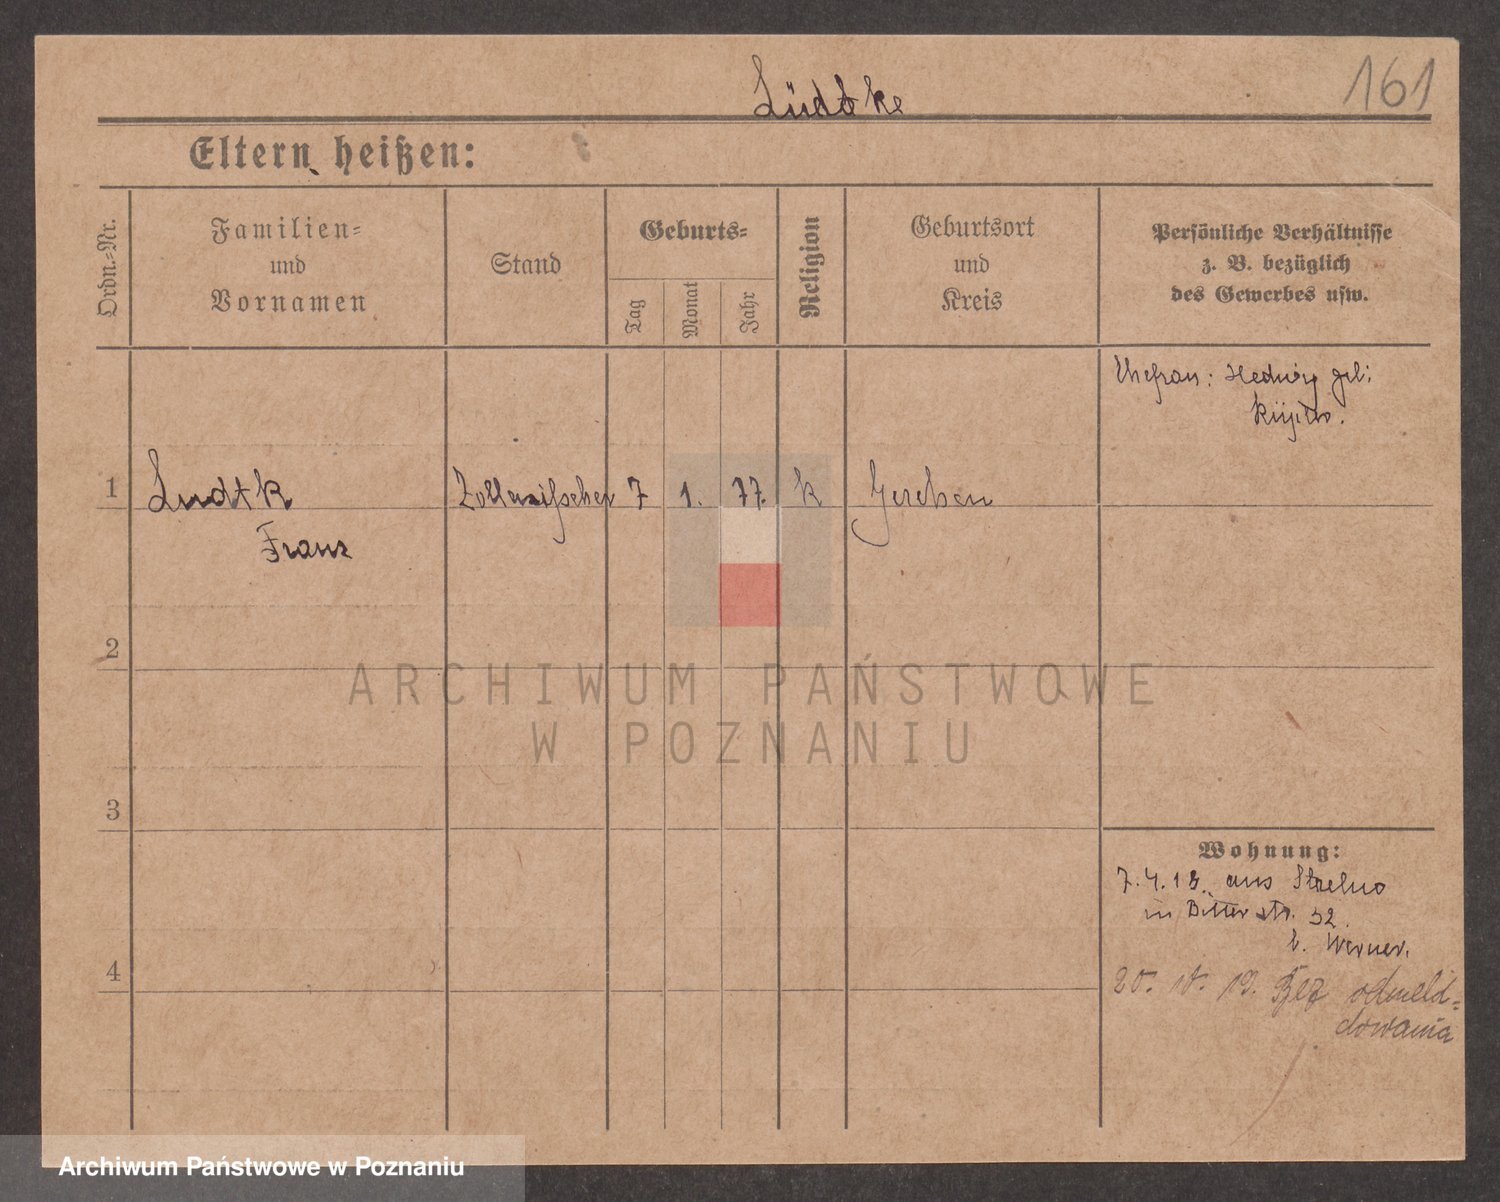 Lüdtke
161
Eltern heißen:
Ordn.-Nr.
Familien-
und
Vornamen
Stand
Geburts-
Tag
Monat
Jahr
Religion
Geburtsort
und
Kreis
Persönliche Verhältnisse
z. B. bezüglich
des Gewerbes usw.
Ehefrau: Hedwig geb:
1
Ludtk
7
1.
77.
k
Franz
2
ARCHIWUM PAŃSTWOWE
W POZNANIU
3
Wohnung:
7.4.18. aus Strelno
in Bitter str. 32.
b. Werner.
4
20. 10. 19. Bez odmeld-
dowania
Archiwum Państwowe w Poznaniu